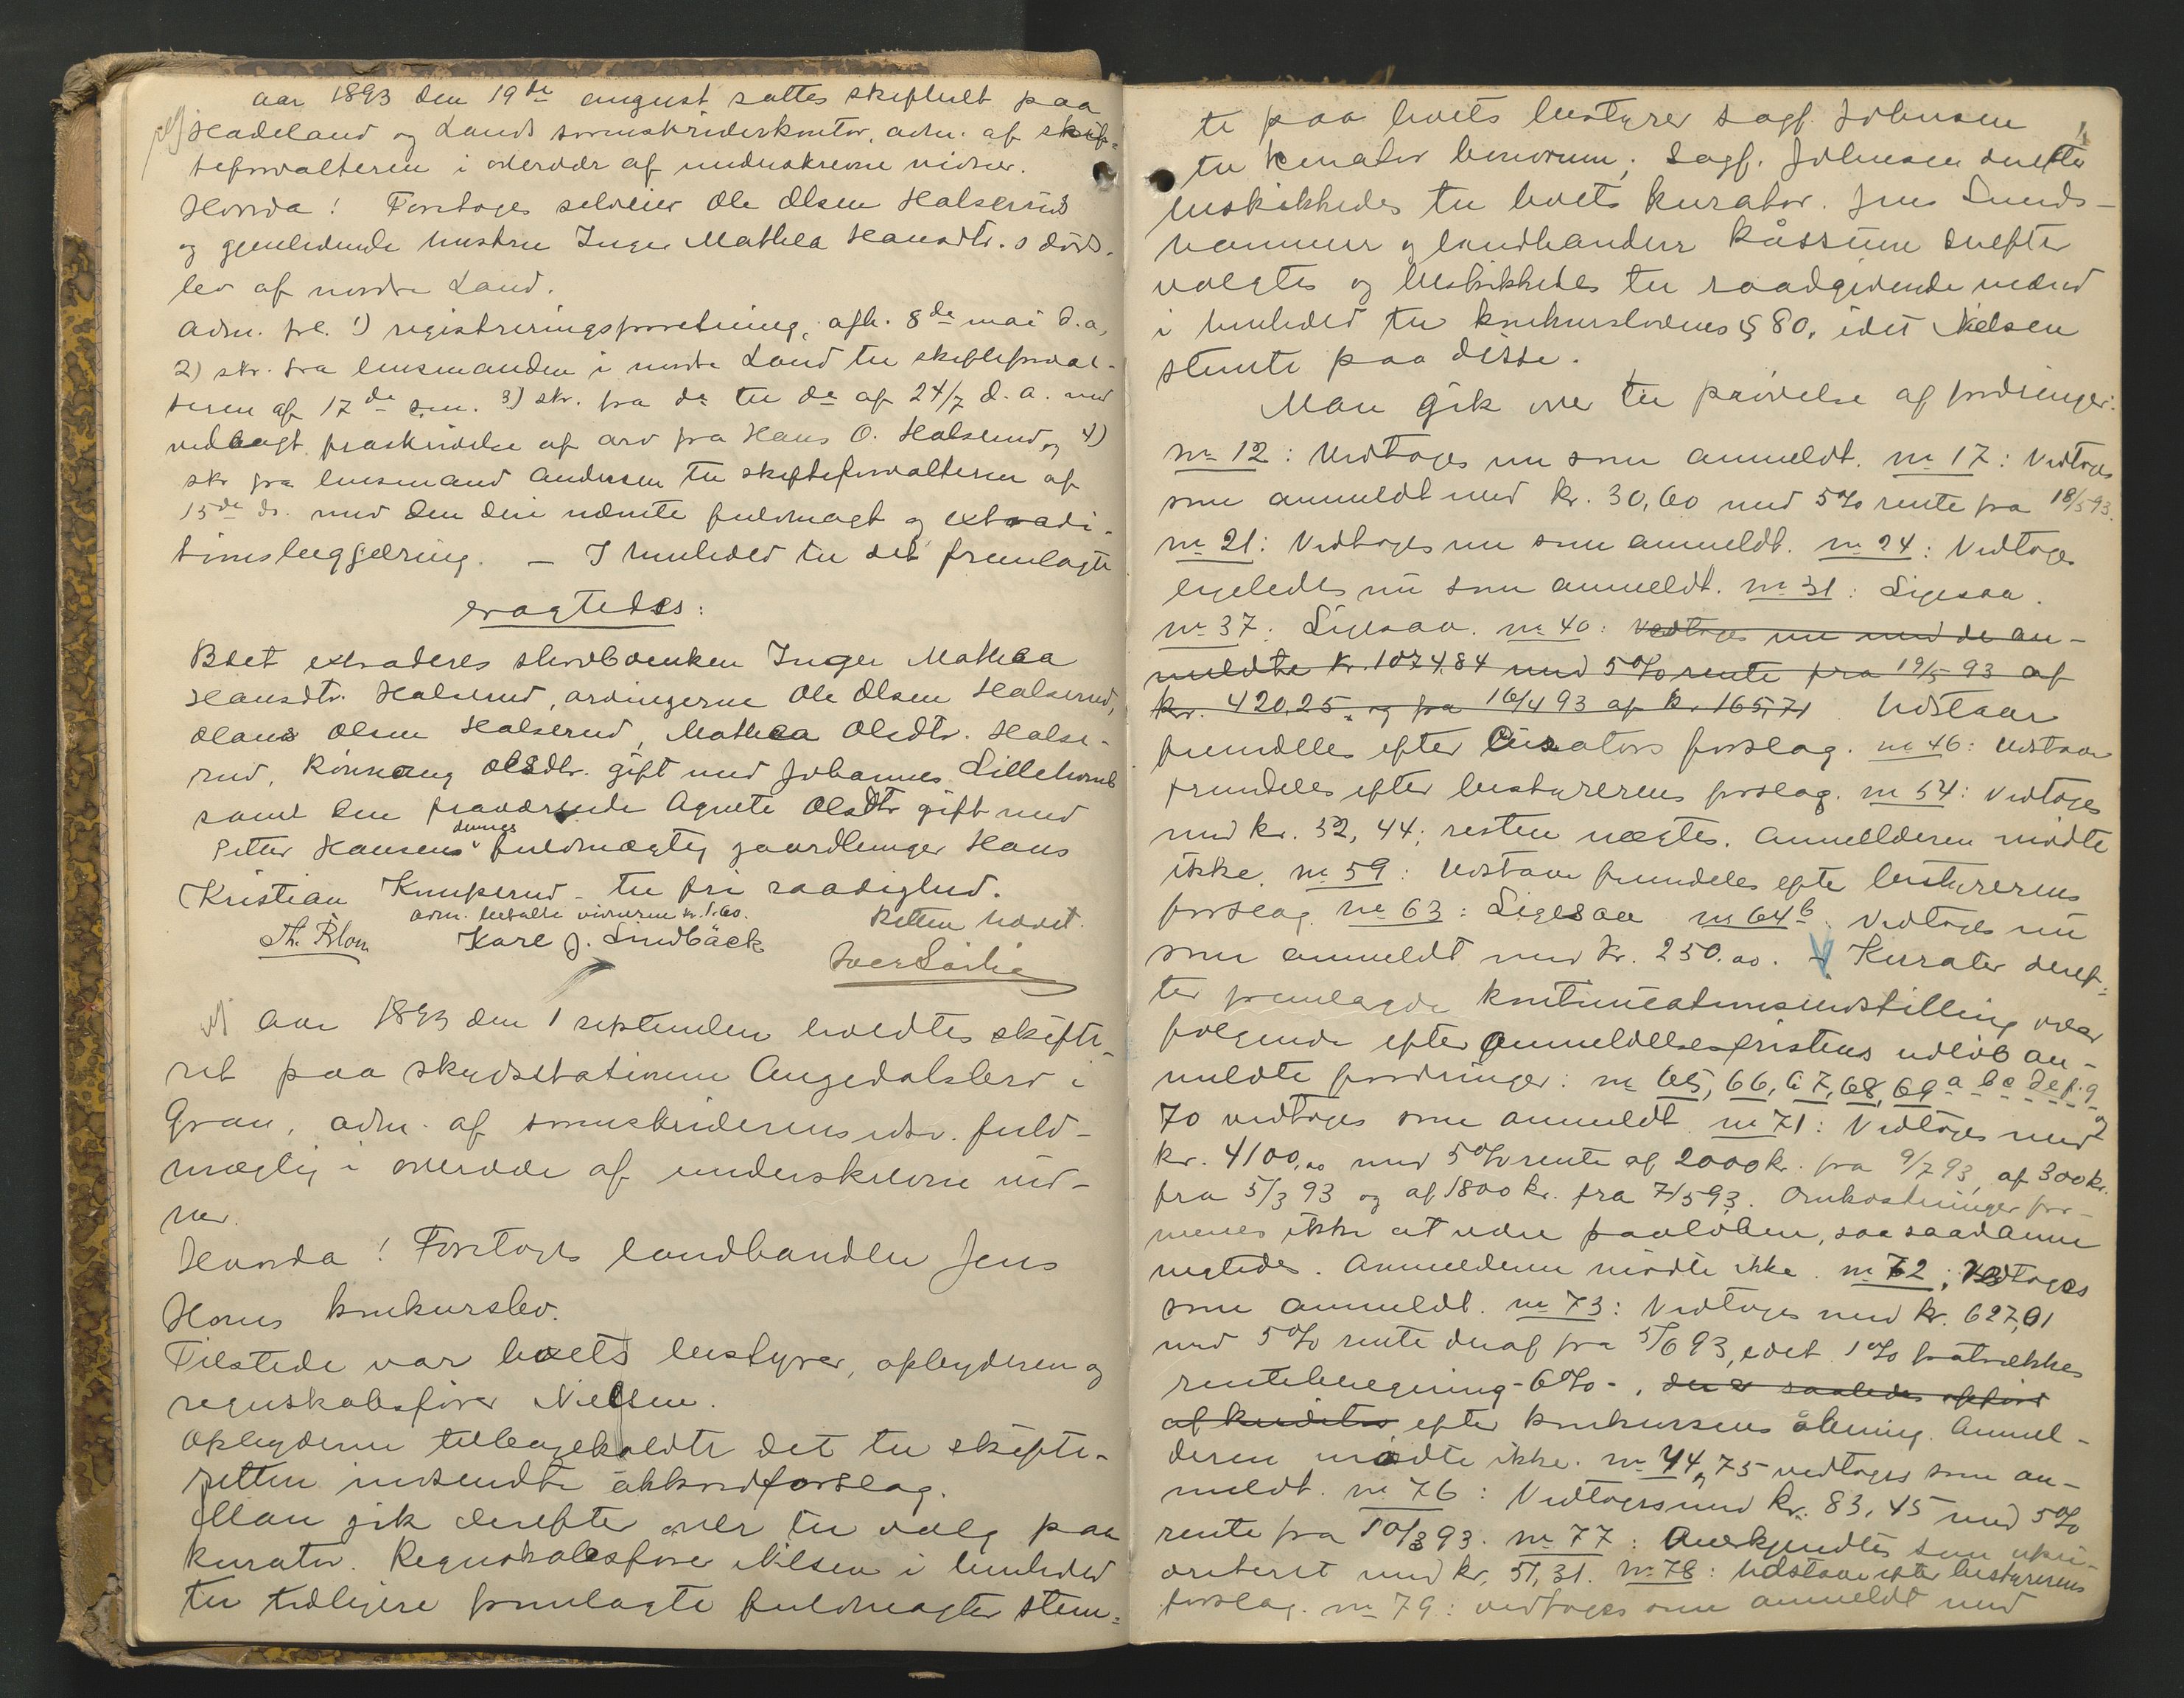 aar 1893 den 19de august sattes skifteret paa
Hadeland og Lands sorenskriverkontor, adm. af skif-
teforvalteren i overvær af underskrevne vidner.
Hvorda! Foretoges selveier Ole Olsen Halseruds
og gjenlevende hustru Inger Mathea Hansdtr.s døds-
bo af nordre Land.
Adm. frl. 1) registreringsforretning, afh. 8de mai d.a,
2) skr. fra lensmanden i nordre Land til skifteforval-
teren af 17de s.m. 3) skr. fra do til do af 24/7 d.a. med
vedlagt fraskrivelse af arv fra Hans O. Halserud og 4)
skr fra lensmand Andersen til skifteforvalteren af
15de ds. med den deri nævnte fuldmagt og extradi-
tionsbegjæring. – I henhold til det fremlagte
eragtedes:
Boet extraderes stervboenken Inger Mathea
Hansdtr. Halserud, arvingerne Ole Olsen Halserud,
Olaus Olsen Halserud, Mathea Olsdtr. Halse-
rud, Rønnaug Olsdtr. gift med Johannes Lillehomb
samt den fraværende Agnete Olsdtr gift med
Petter Hansens
dennes
fuldmægtig gaardbruger Hans
Kristian Kumperud – til fri raadighed.
Adm. betalte vidnerne kr. 1.60.
Retten hævet.
Th. Blom Karl J. Lindbäck
Aar 1893 den 1 september holdtes skifte-
ret paa skydsstationen Augedalsbro i
Gran, adm. af sorenskriverens edsv. fuld-
mægtig i overvær af underskrevne vid-
ner.
Hvorda! Foretoges landhandler Jens
Horns konkursbo.
Tilstede var boets bestyrer, opbyderen og
regnskabsfører Nielsen.
Opbyderen tilbagekaldte det til skifte-
retten indsendte akkordforslag.
Man gik derefter over til valg paa
kurator. Regnskabsfører Nilsen i henhold
til tidligere fremlagte fuldmagter stem-
te paa boets bestyrer sagf. Johnsen
til kurator bonorum; sagf. Johnsen derefter
beskikkedes til boets kurator. Jens Lunds-
hammer og landhandler Kåssum derefter
valgtes og beskikkedes til raadgivende mænd
i henhold til konkurslovens § 80, idet Nielsen
stemte paa disse.
Man gik over til prøvelse af fordringer:
no 12: Vedtoges nu som anmeldt. no 17: Vedtoges
som anmeldt med kr. 30,60 med 5% rente fra 18/5 93.
no 21: Vedtoges nu som anmeldt. no 24: Vedtoges
ligeledes nu som anmeldt. no 31: Ligesaa.
no 37: Ligesaa. no 40: Vedtoges nu med de an-
meldte kr. 1074,84 med 5% rente fra 19/5 93 af
kr. 420,25 og fra 16/4 93 af kr. 165,71 Udstaar
fremdeles efter Curators forslag. no 46: Udstaar
fremdeles efter bestyrerens forslag. no 54: Vedtoges
med kr. 32,44; resten nægtes. Anmelderen mødte
ikke. no 59: Udstaar fremdeles efter bestyrerens
forslag. no 63: Ligesaa no 64b. Vedtoges nu
som anmeldt med kr. 250.00. Kurator deref-
ter fremlagde kontinuationsindstilling over
følgende efter anmeldelsesfristens udløb an-
meldte fordringer: no 65, 66, 67, 68, 69 a b c d e f. g og
70 vedtoges som anmeldt no 71: Vedtoges med
kr. 4100,00 med 5% rente af 2000 kr. fra 9/7 93, af 300 kr.
fra 5/3 93 og af 1800 kr. fra 7/5 93. Omkostninger for-
menes ikke at være paaløben, saa saadanne
negtedes. Anmelderen mødte ikke. no 72: Vedtoges
som anmeldt. no 73: Vedtoges med kr. 627,01
med 5% rente deraf fra 5/6 93, idet 1% fratrækkes
renteberegning – 6% –, der er saaledes opført
af kreditor, efter konkursens åbning. Anmel-
deren mødte ikke. no 74 og 75 vedtoges som an-
meldt. no 76: Vedtoges med kr. 83,45 med 5%
rente fra 10/3 93. no 77: Anerkjendtes som upri-
oriteret med kr. 51,31. no 78: Udstaar efter bestyrerens
forslag. no 79: vedtoges som anmeldt med